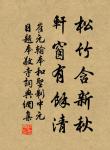 松竹含新秋
軒窗有餘清
崔元翰奉和聖制中元
日題奉敬寺詞典網集